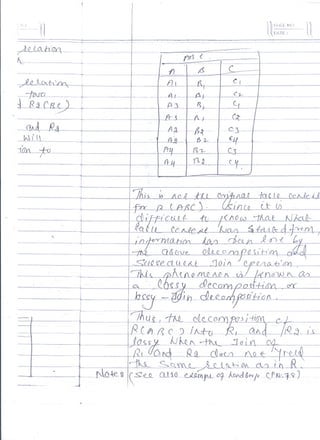 PAGE NO.
DATE:
relation
m c
A B C
A1 B1 C1
relation
A1 B1 C2
two
A3 B1 C1
d R2(BC)
A3 B1 C2
and R2
A2 B2 C3
will
A2 B2 C4
ion to
A4 B2 C3
A4 B2 C4
This is not the original table content
for R (ABC). Since it is
difficult to know that what
table content was started from,
information has been lost by
the above decomposition and
subsequent Join operation.
This phenomenon is known as
a lossy decomposition or
lossy - Join decomposition.
Thus, the decomposition of
R(ABC) into R1 and R2 is
lossy when the Join of
R1 and R2 does not yield
the same relation as in R.
Notes (See also example of